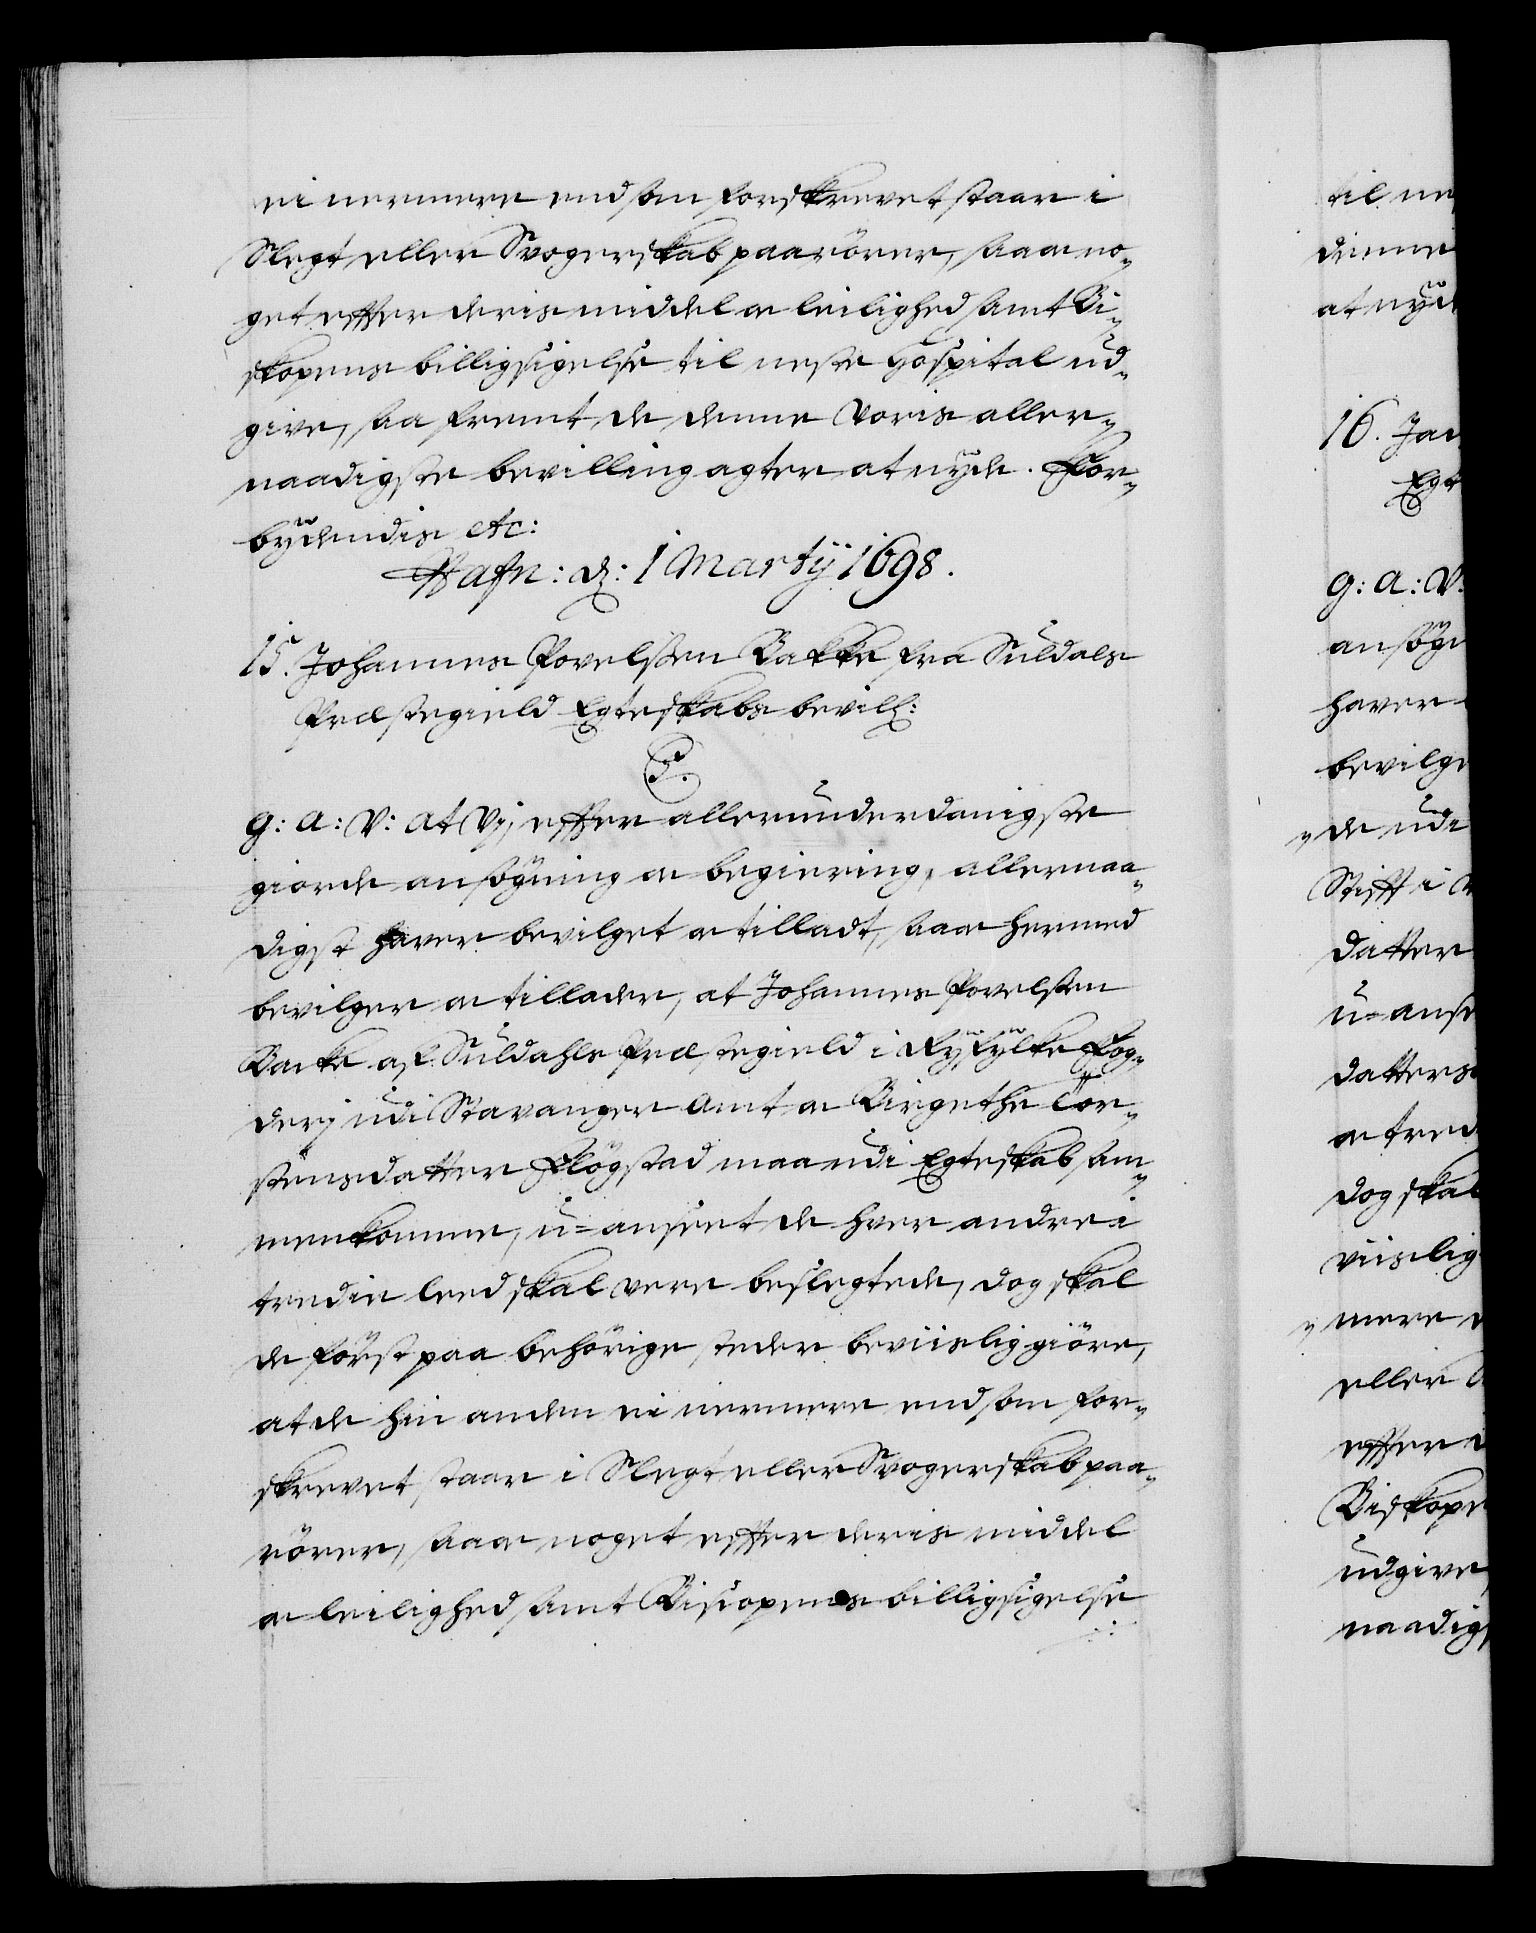 ei nermere end som forskrevet staar i
Slegt eller Svogerskab paarörer, saa oc no¬
get effter deris middel oc leilighed samt Bi¬
skopens billigsigelse til neste Hospital ud¬
give, saa fremt de denne Voris aller¬
naadigste bevilling agter at nyde. For¬
bydendis etc:
Hafn: d: 1 Martij 1698.
15. Johannes Povelsen Bakke fra Suldals
Præstegield Egteskabs bevill:
C5.
G: A: V: at Vj effter allerunderdanigste
giorde ansögning oc begiering, allernaa¬
digst haver bevilget oc tilladt, saa oc hermed
bevilger oc tillader, at Johannes Povelsen
Backe af Suldahls Præstegield i Ryfylke Fog¬
derj udi Stavanger Amt oc Birgethe Tor¬
stensdatter Flögstad maa udi Egteskab sam¬
menkomme, u=anseet de hver andre i
tredie leed skal vere beslegtede, dog skal
de först paa behörige steder beviislig giöre,
at de hin anden ei nermere end som for¬
skrevet staar i Slegt eller Svogerskab paa¬
rörer, saa oc noget effter deris middel
oc leilighed samt Biscopens billigsigelse
til ne
denne
at nyd
16. Jac
Egt
G: A: V:
ansögn
haver
bevilge
de udi
Stifft i
datter
u=anse
datters
oc tred
dog skal
viislig
mere
eller S
effter
Biskope
udgive,
naadigs